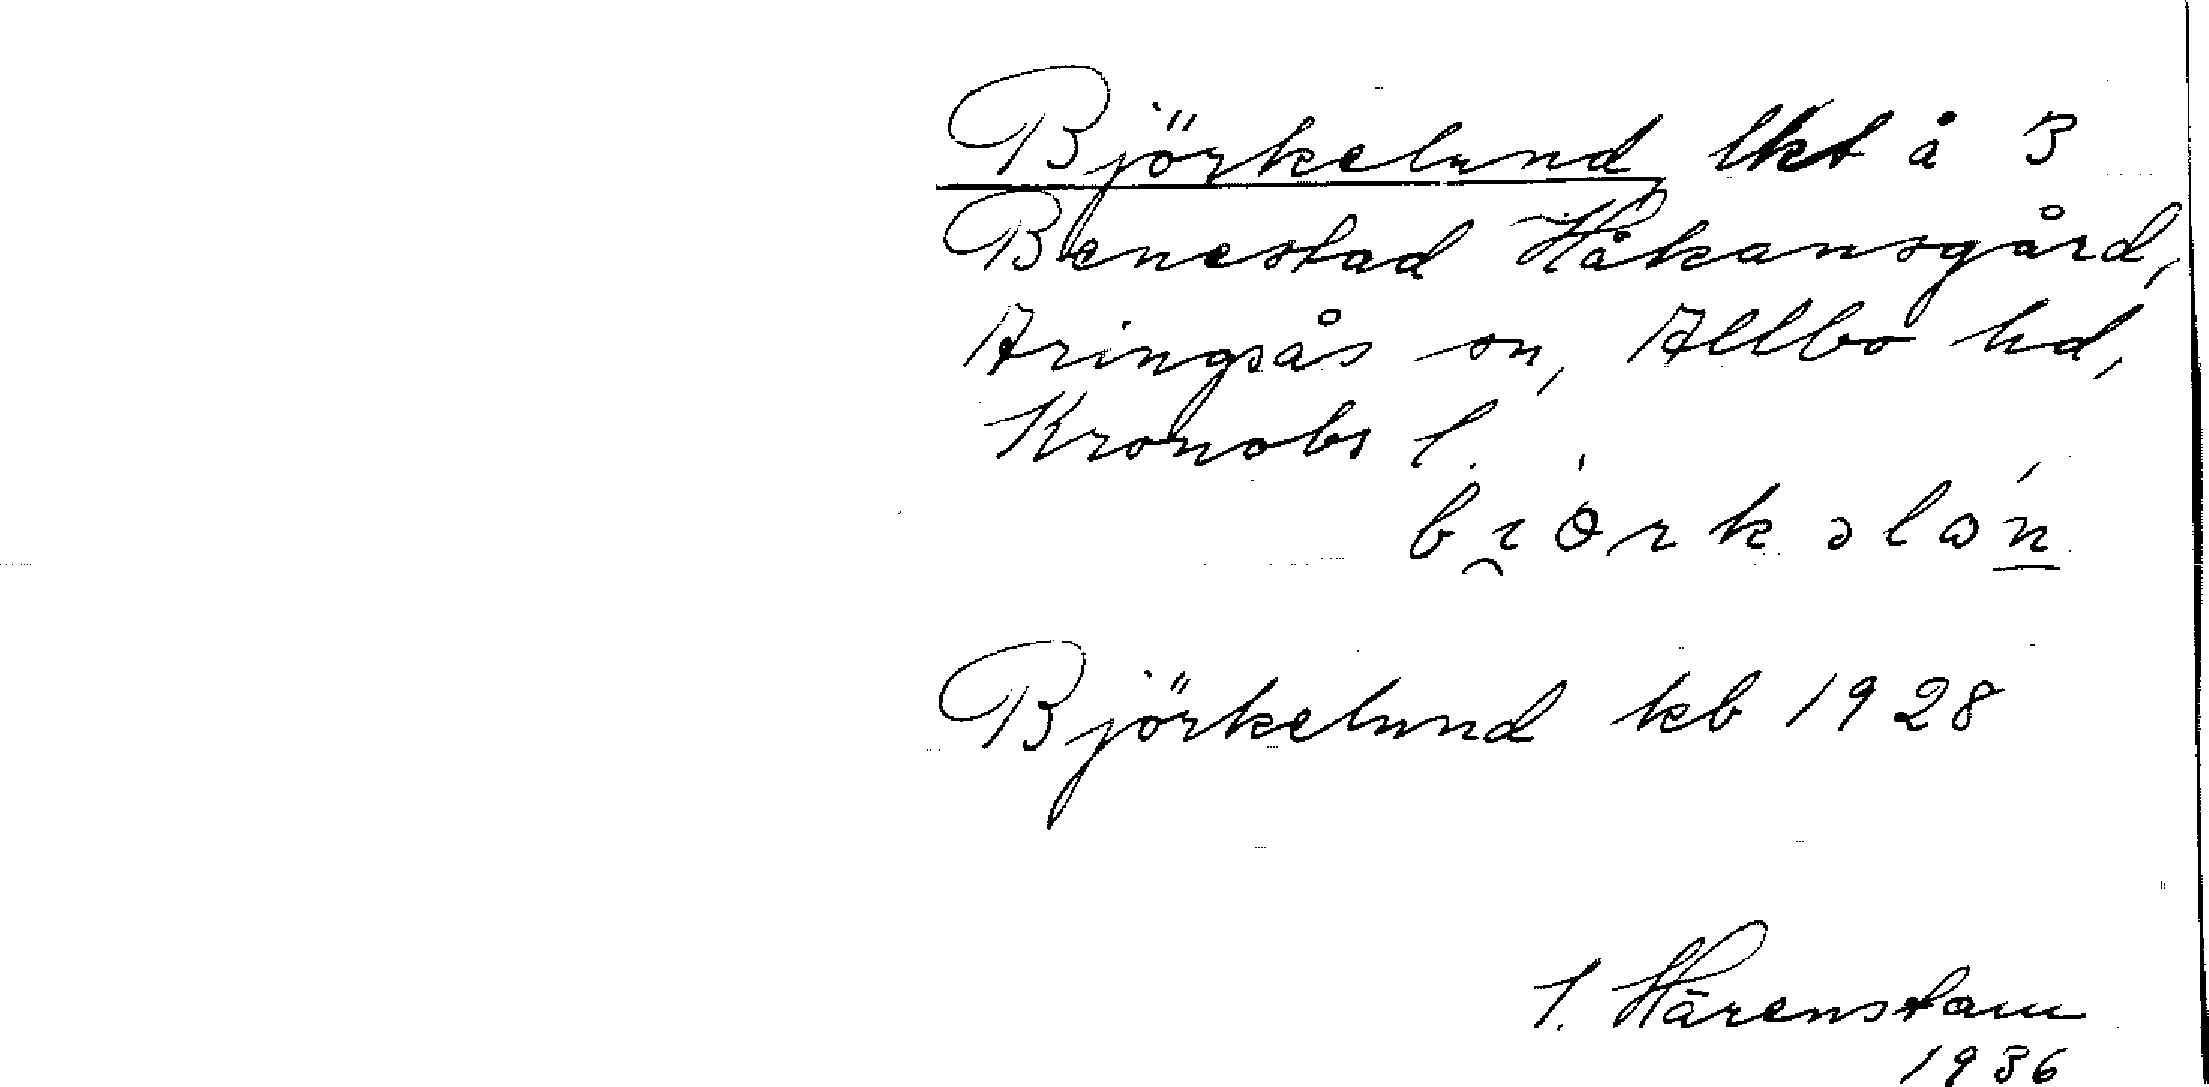 Björkelund lkt å 3
Benestad Håkansgård,
Aringsås sn, Allbo hd,
Kronobs l.
Björkelund kb 1928
I. Härenstam
1936